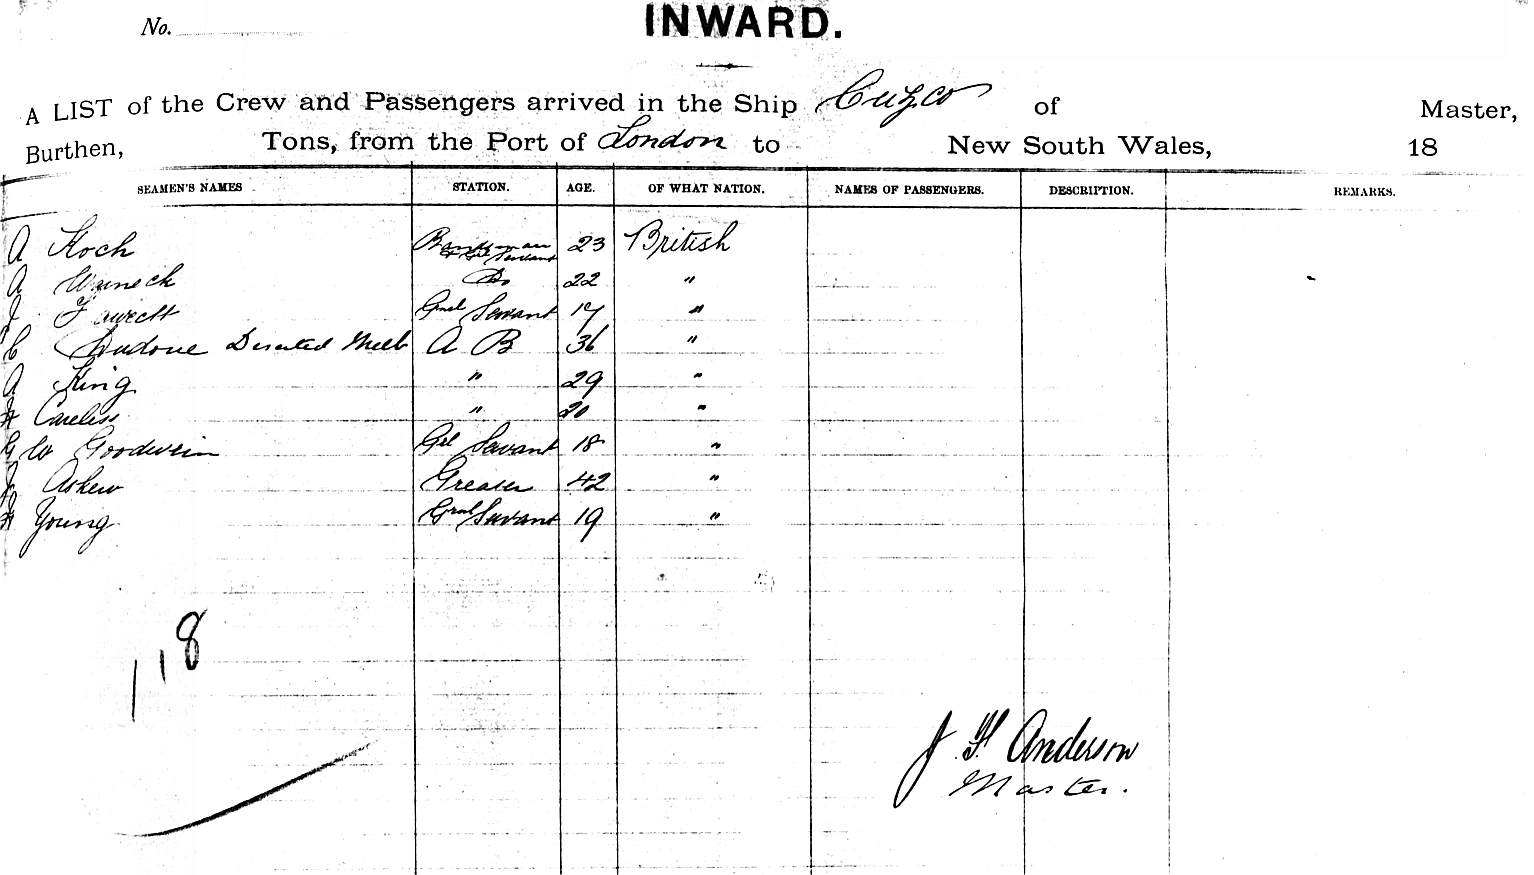 No.
INWARD.
A LIST of the Crew and Passengers arrived in the Ship Cuzco of Master,
Burthen, Tons, from the Port of London to New South Wales, 18
SEAMEN'S NAMES STATION. AGE. OF WHAT NATION. NAMES OF PASSENGERS. DESCRIPTION. REMARKS.
A Koch Bandsman & Gel Servant 23 British
A Warneck Do 22 "
J Fawcett Genl Servant 17 "
C Deserted Melb A B 36 "
A King " 29 "
H Careless " 20 "
G W Goodwin Gel Servant 18 "
Askew Greaser 42 "
H Young Genl Servant 19 "
118
J F Anderson
Master.